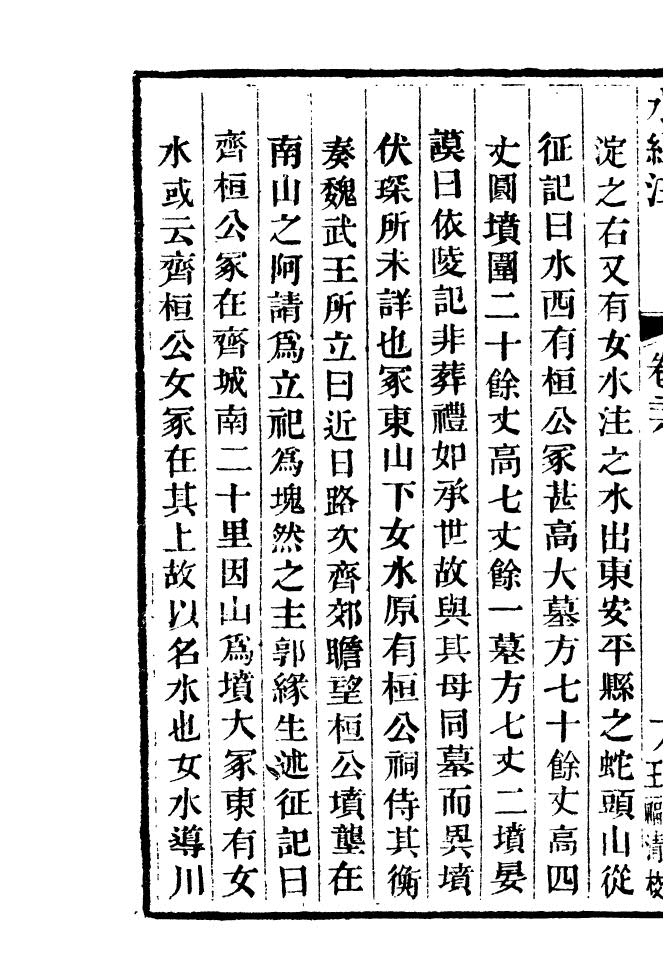 水經注
卷
王
清校
淀之右又有女水注之水出東安平縣之蛇頭山從
征記曰水西有桓公冢甚高大墓方七十餘丈高四
丈圓墳圍二十餘丈高七丈餘一墓方七丈二墳晏
謨曰依陵記非葬禮如承世故與其母同墓而異墳
伏琛所未詳也冢東山下女水原有桓公祠侍其衡
奏魏武王所立曰近日路次齊郊瞻望桓公墳壟在
南山之阿請爲立祀爲塊然之主郭緣生述征記曰
齊桓公冢在齊城南二十里因山爲墳大冢東有女
水或云齊桓公女冢在其上故以名水也女水導川